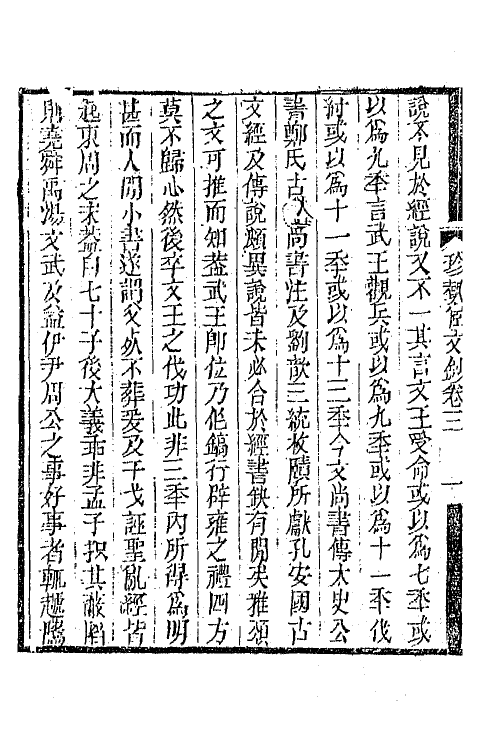 珍埶宧文鈔卷三　一
說不見於經說又不一其言文王受命或以爲七年或
以爲九年言武王觀兵或以爲九年或以爲十一年伐
紂或以爲十一年或以爲十三年今文尚書傳太史公
書鄭氏古文尚書注及劉歆三統枚賾所獻孔安國古
文經及傳說頗異說皆未必合於經書缺有閒矣雅頌
之文可推而知葢武王卽位乃作鎬行辟雍之禮四方
莫不歸心然後卒文王之伐功此非三年內所得爲明
甚而人閒小書遂謂父死不葬爰及干戈誣聖亂經皆
起東周之末葢自七十子後大義乖非孟子抧其蔽㫺
則堯舜禹湯文武及益伊尹周公之事好事者輒